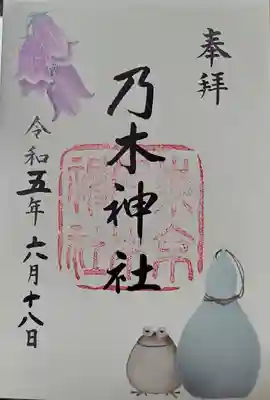 奉拝
乃木神社
令和五年六月十八日